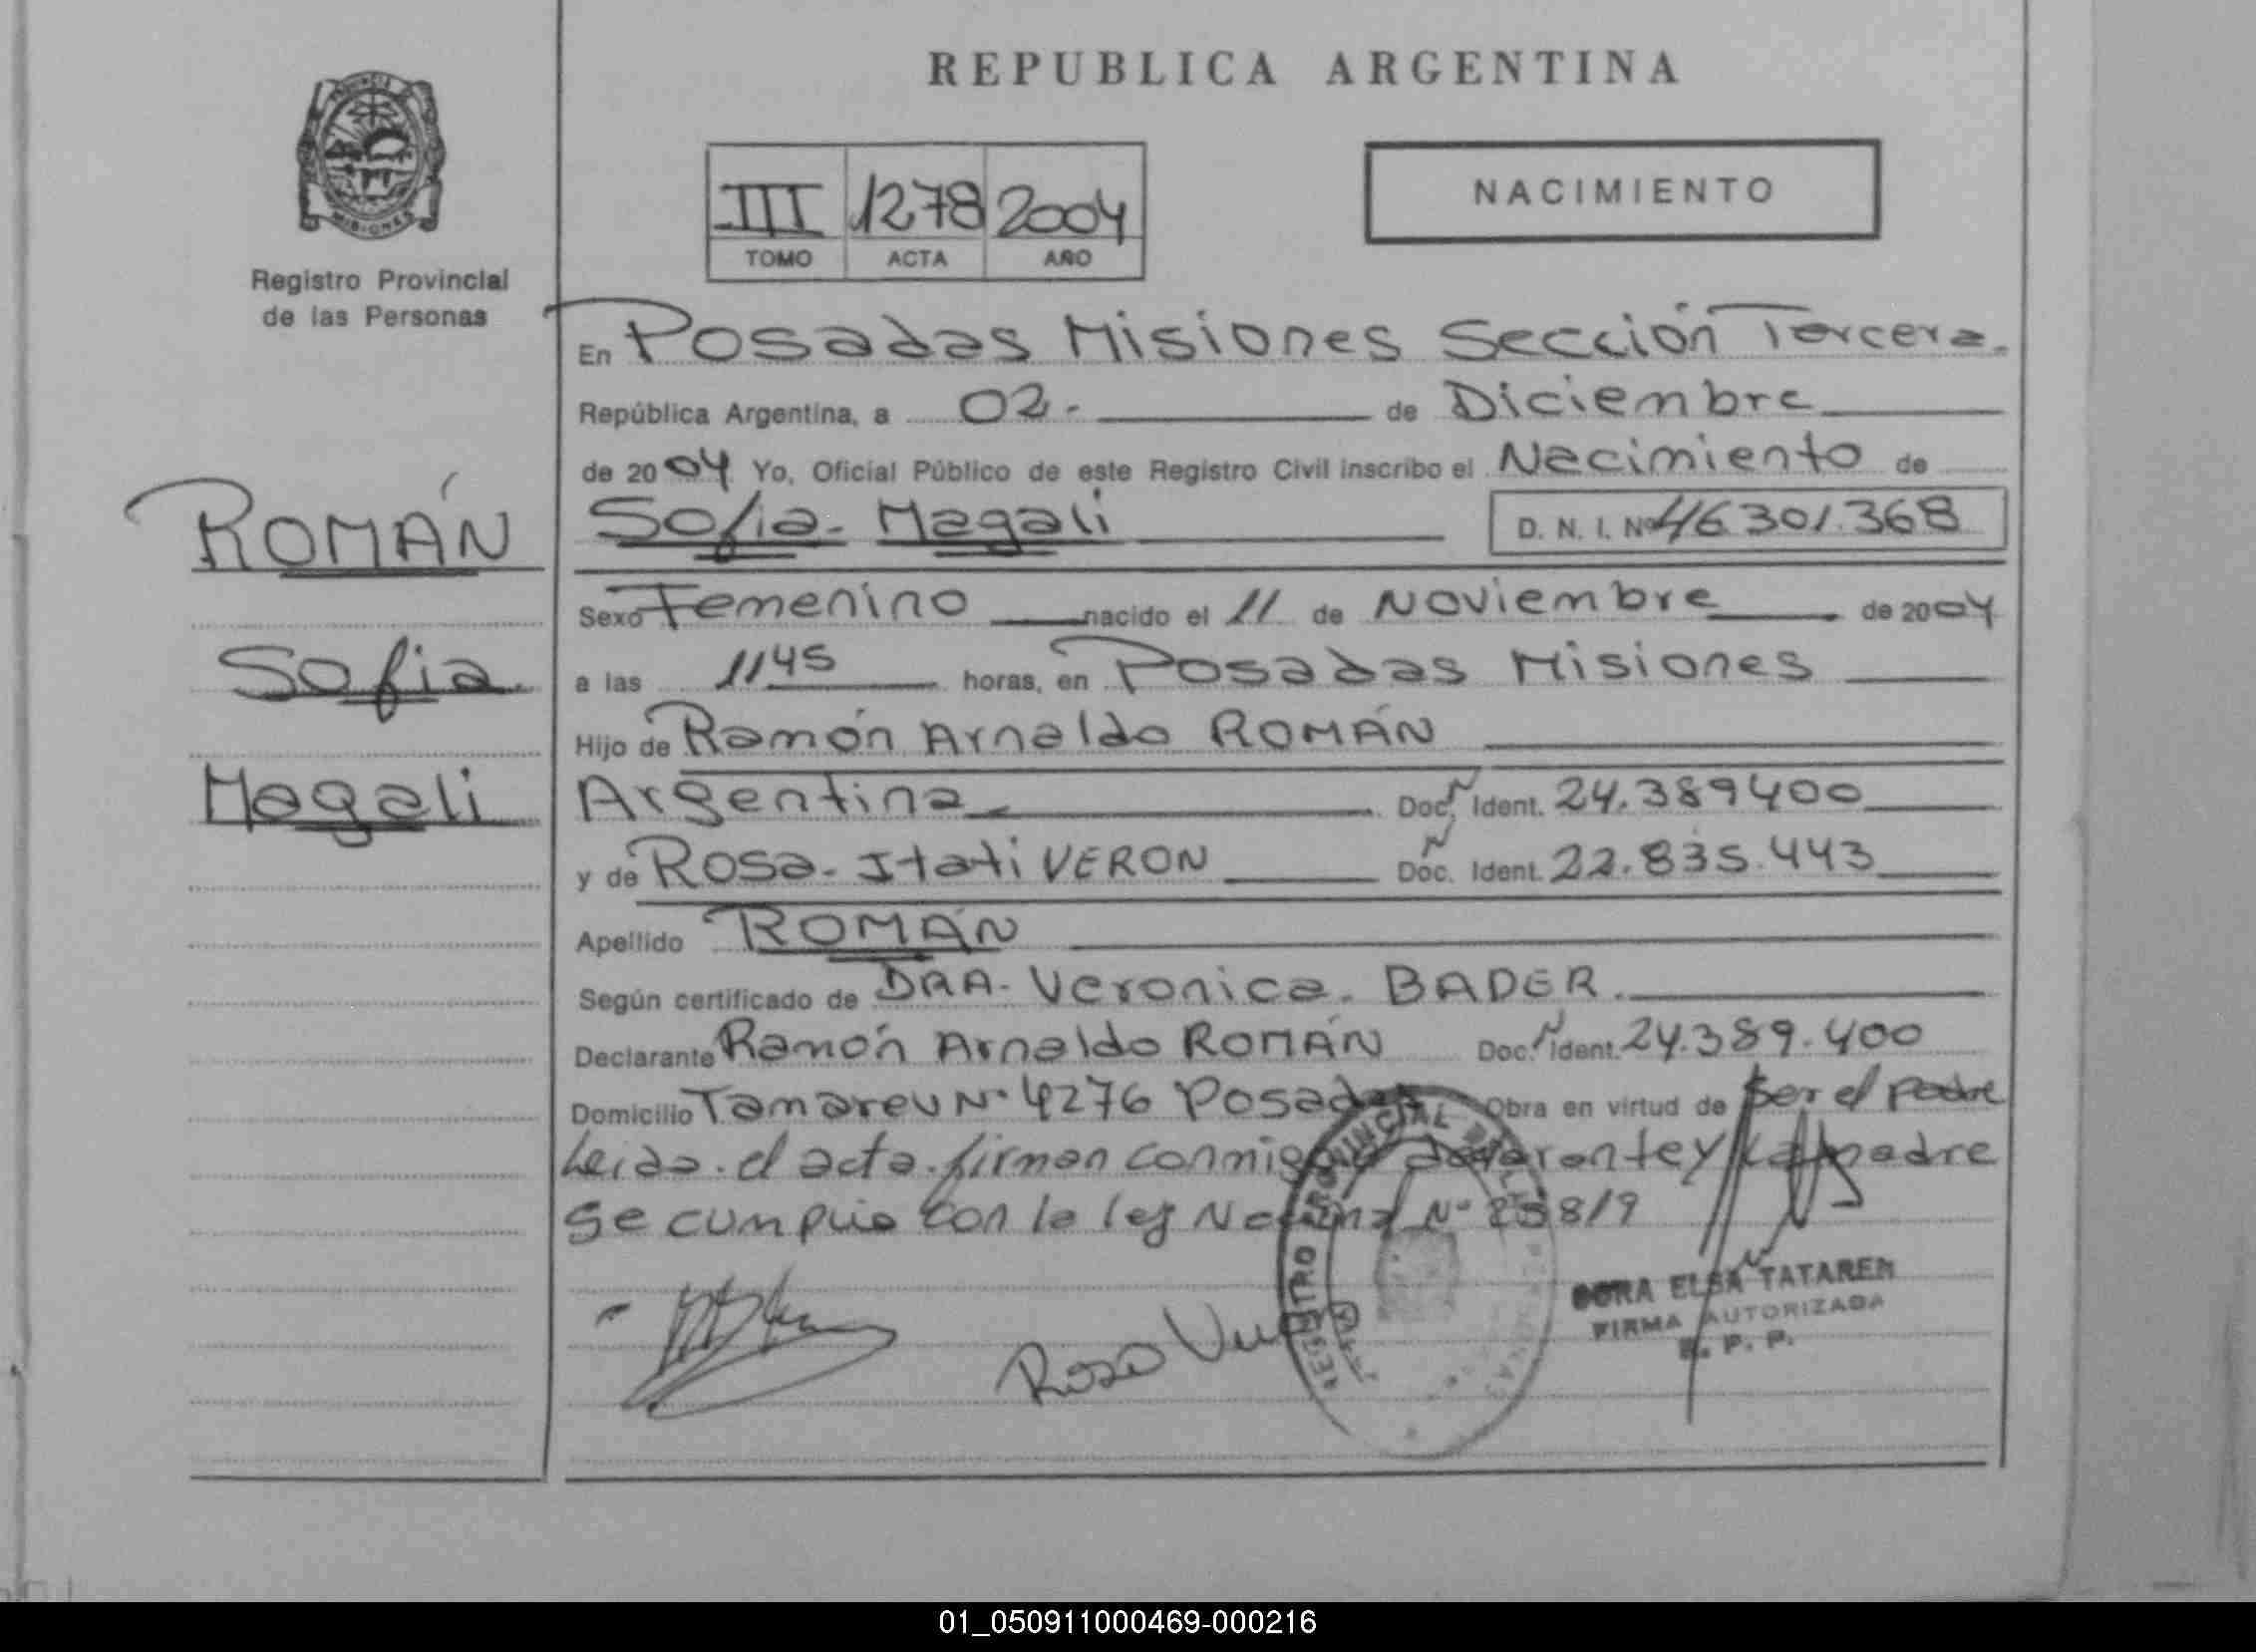 REPUBLICA ARGENTINA
PROVINCIA DE MISIONES
Registro Provincial
de las Personas
III 1278 2004
TOMO ACTA AÑO
NACIMIENTO
En Posadas Misiones Sección Tercera.
República Argentina, a 02.- de Diciembre
de 2004 Yo, Oficial Público de este Registro Civil inscribo el Nacimiento de
Sofia- Magali D. N. I. Nº 46.301.368
Sexo Femenino nacido el 11 de Noviembre de 2004
a las 1145 horas, en Posadas Misiones
Hijo de Ramón Arnaldo ROMÁN
Argentina Doc. Ident. 24.389400
y de Rosa- Itati VERON Doc. Ident. 22.835.443
Apellido ROMÁN
Según certificado de DRA- Veronica. BADER.
Declarante Ramón Arnaldo ROMÁN Doc. Ident. 24.389.400
Domicilio Tamareu Nº 4276 Posadas Obra en virtud de ser el padre
Leida el acta firman conmigo declarante y la madre
se cumplio con la ley Nacional Nº 25819
ROMÁN
Sofia
Magali
Rosa
REGISTRO PROVINCIAL DE LAS
ELSA TATAREN
FIRMA AUTORIZADA
R. P. P.
01_050911000469-000216